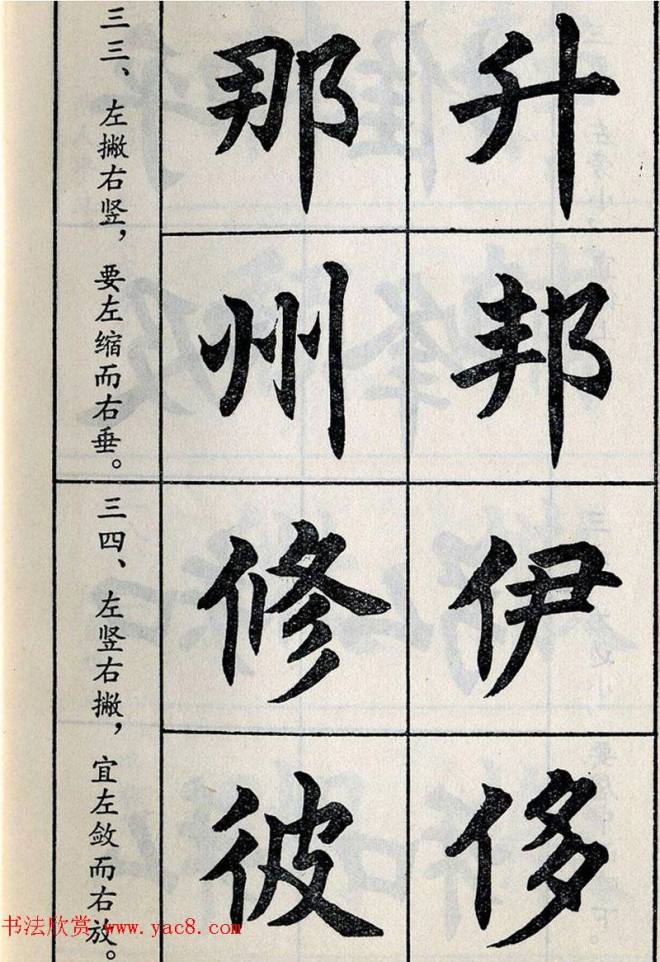 升
邦
伊
侈
那
州
修
彼
三三、左撇右竖，要左缩而右垂。
三四、左竖右撇，宜左敛而右放。
书法欣赏 www.yac8.com